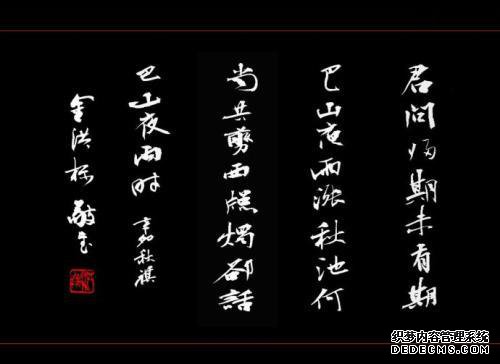 君问归期未有期
巴山夜雨涨秋池何
当共剪西牕烛郤話
巴山夜雨时
辛卯秋祺
金洪标 敬书
织梦内容管理系统
DEDECMS.COM